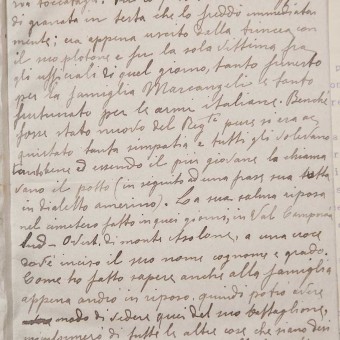 di granata in testa che lo freddò immediata
mente; era appena uscito dalla trincea con
il suo plotone e fu la sola vittima fra
gli ufficiali di quel giorno, tanto funesto
per la famiglia Marcangeli e tanto
fortunato per le armi italiane. Benchè
fosse stato nuovo del Regto pure si era ac
quistato tanta simpatia e tutti gli volevano
bene ed essendo il più giovane lo chiama
vano il potto (in seguito ad una frase sua detta
in dialetto amerino). La sua salma riposa
nel cimitero fatto in quei giorni, in Val
Sud-Ovest di monte Asolone, a una croce
trovasi inciso il suo nome cognome e grado.
Come ho fatto sapere anche alla famiglia
appena andrò in riposo, quindi potrò avere
modo di vedere quei del suo battaglione,
m'informerò di tutte le altre cose che siano desi